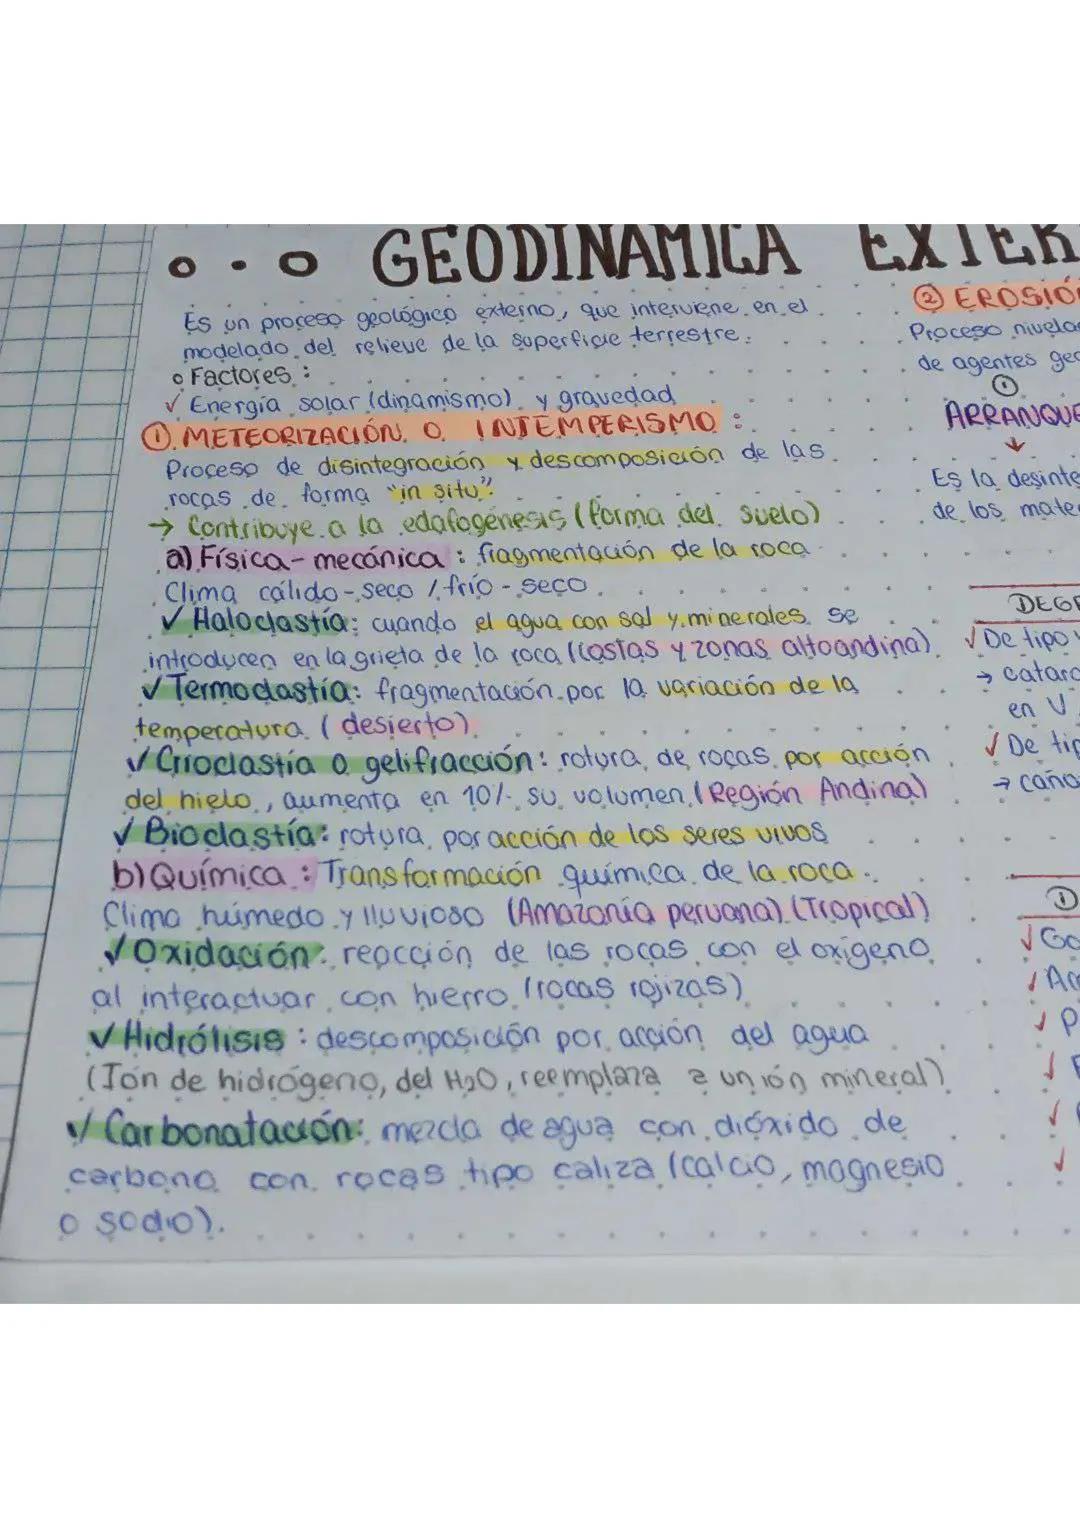 GEODINAMICA EXTER
Es un proceso geológico externo, que interviene en el
modelado del relieve de la superficie terrestre.
Factores :
✓ Energía solar (dinamismo) y gravedad
① METEORIZACIÓN O INTEMPERISMO :
Proceso de disintegración y descomposición de las
rocas de forma "in situ".
→ Contribuye a la edafogénesis (forma del suelo)
a) Física - mecánica : fragmentación de la roca
Clima cálido - seco / frío - seco.
✓ Haloclastía: cuando el agua con sal y minerales se
introducen en la grieta de la roca (costas y zonas altoandina)
✓ Termoclastía: fragmentación por la variación de la
temperatura (desierto).
✓ Crioclastía o gelifracción: rotura de rocas por acción
del hielo, aumenta en 10% su volumen (Región Andina)
✓ Bioclastía: rotura por acción de los seres vivos
b) Química : Transformación química de la roca.
Clima húmedo y lluvioso (Amazonía peruana) (Tropical)
✓ Oxidación: reacción de las rocas con el oxígeno
al interactuar con hierro (rocas rojizas)
✓ Hidrólisis : descomposición por acción del agua
(Ión de hidrógeno, del H2O, reemplaza a un ión mineral)
✓ Carbonatación: mezcla de agua con dióxido de
carbono con rocas tipo caliza (calcio, magnesio
o sodio).
② EROSIÓN
Proceso nivela
de agentes geo
①
ARRANQUE
↓
Es la desinte
de los mate
DEGR
✓ De tipo
→ catara
en V
✓ De tip
→ caño
D
✓ Go
✓ Ac
✓ P
✓
✓
✓